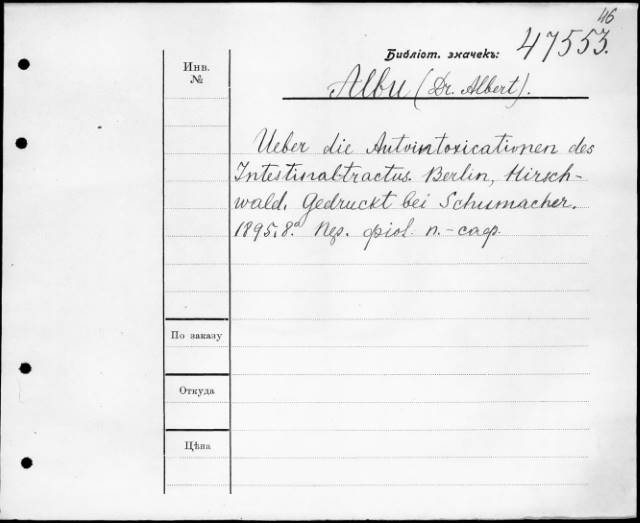 46
Библіот. значекъ: 47553.
Инв.
№
Albu (Dr. Albert).
Ueber die Autointoxicationen des
Intestinaltractus. Berlin, Hirsch-
wald. Gedruckt bei Schumacher.
1895, 8º. Пер. фіол. п.-сафр.
По заказу
Откуда
Цѣна